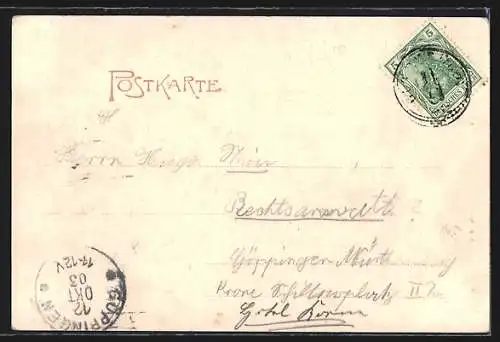 5
POSTKARTE
Herrn Hugo
Rechtsanwalt
Göppingen Württ
Krone Schillerplatz II
Hotel Krone
GÖPPINGEN
12
OKT
03
11-12V